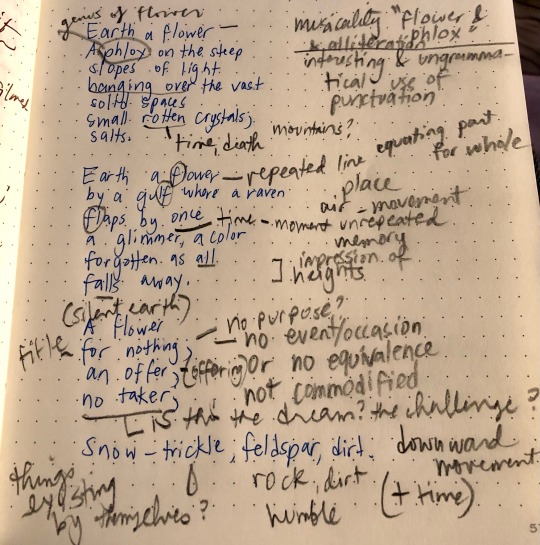 genus of flower
Earth a flower —
A phlox on the steep
slopes of light
hanging over the vast
solid spaces
small rotten crystals;
salts.
musicality "flower &
& alliteration phlox"
interesting & ungramma-
tical use of
punctuation
time, death mountains?
equating part
for whole
Earth a flower — repeated line
by a gulf where a raven place
air - movement
flaps by once time - moment unrepeated
a glimmer, a color memory
forgotten as all ] impression of
falls away. heights
(silent earth)
A flower — no purpose?
title for nothing; — no event/occasion
an offer; (offering) Or no equivalence
no taker; not commodified
Is this the dream? the challenge?
Snow-trickle, feldspar, dirt. downward
movement
things rock, dirt (+ time)
existing humble
by themselves?
5